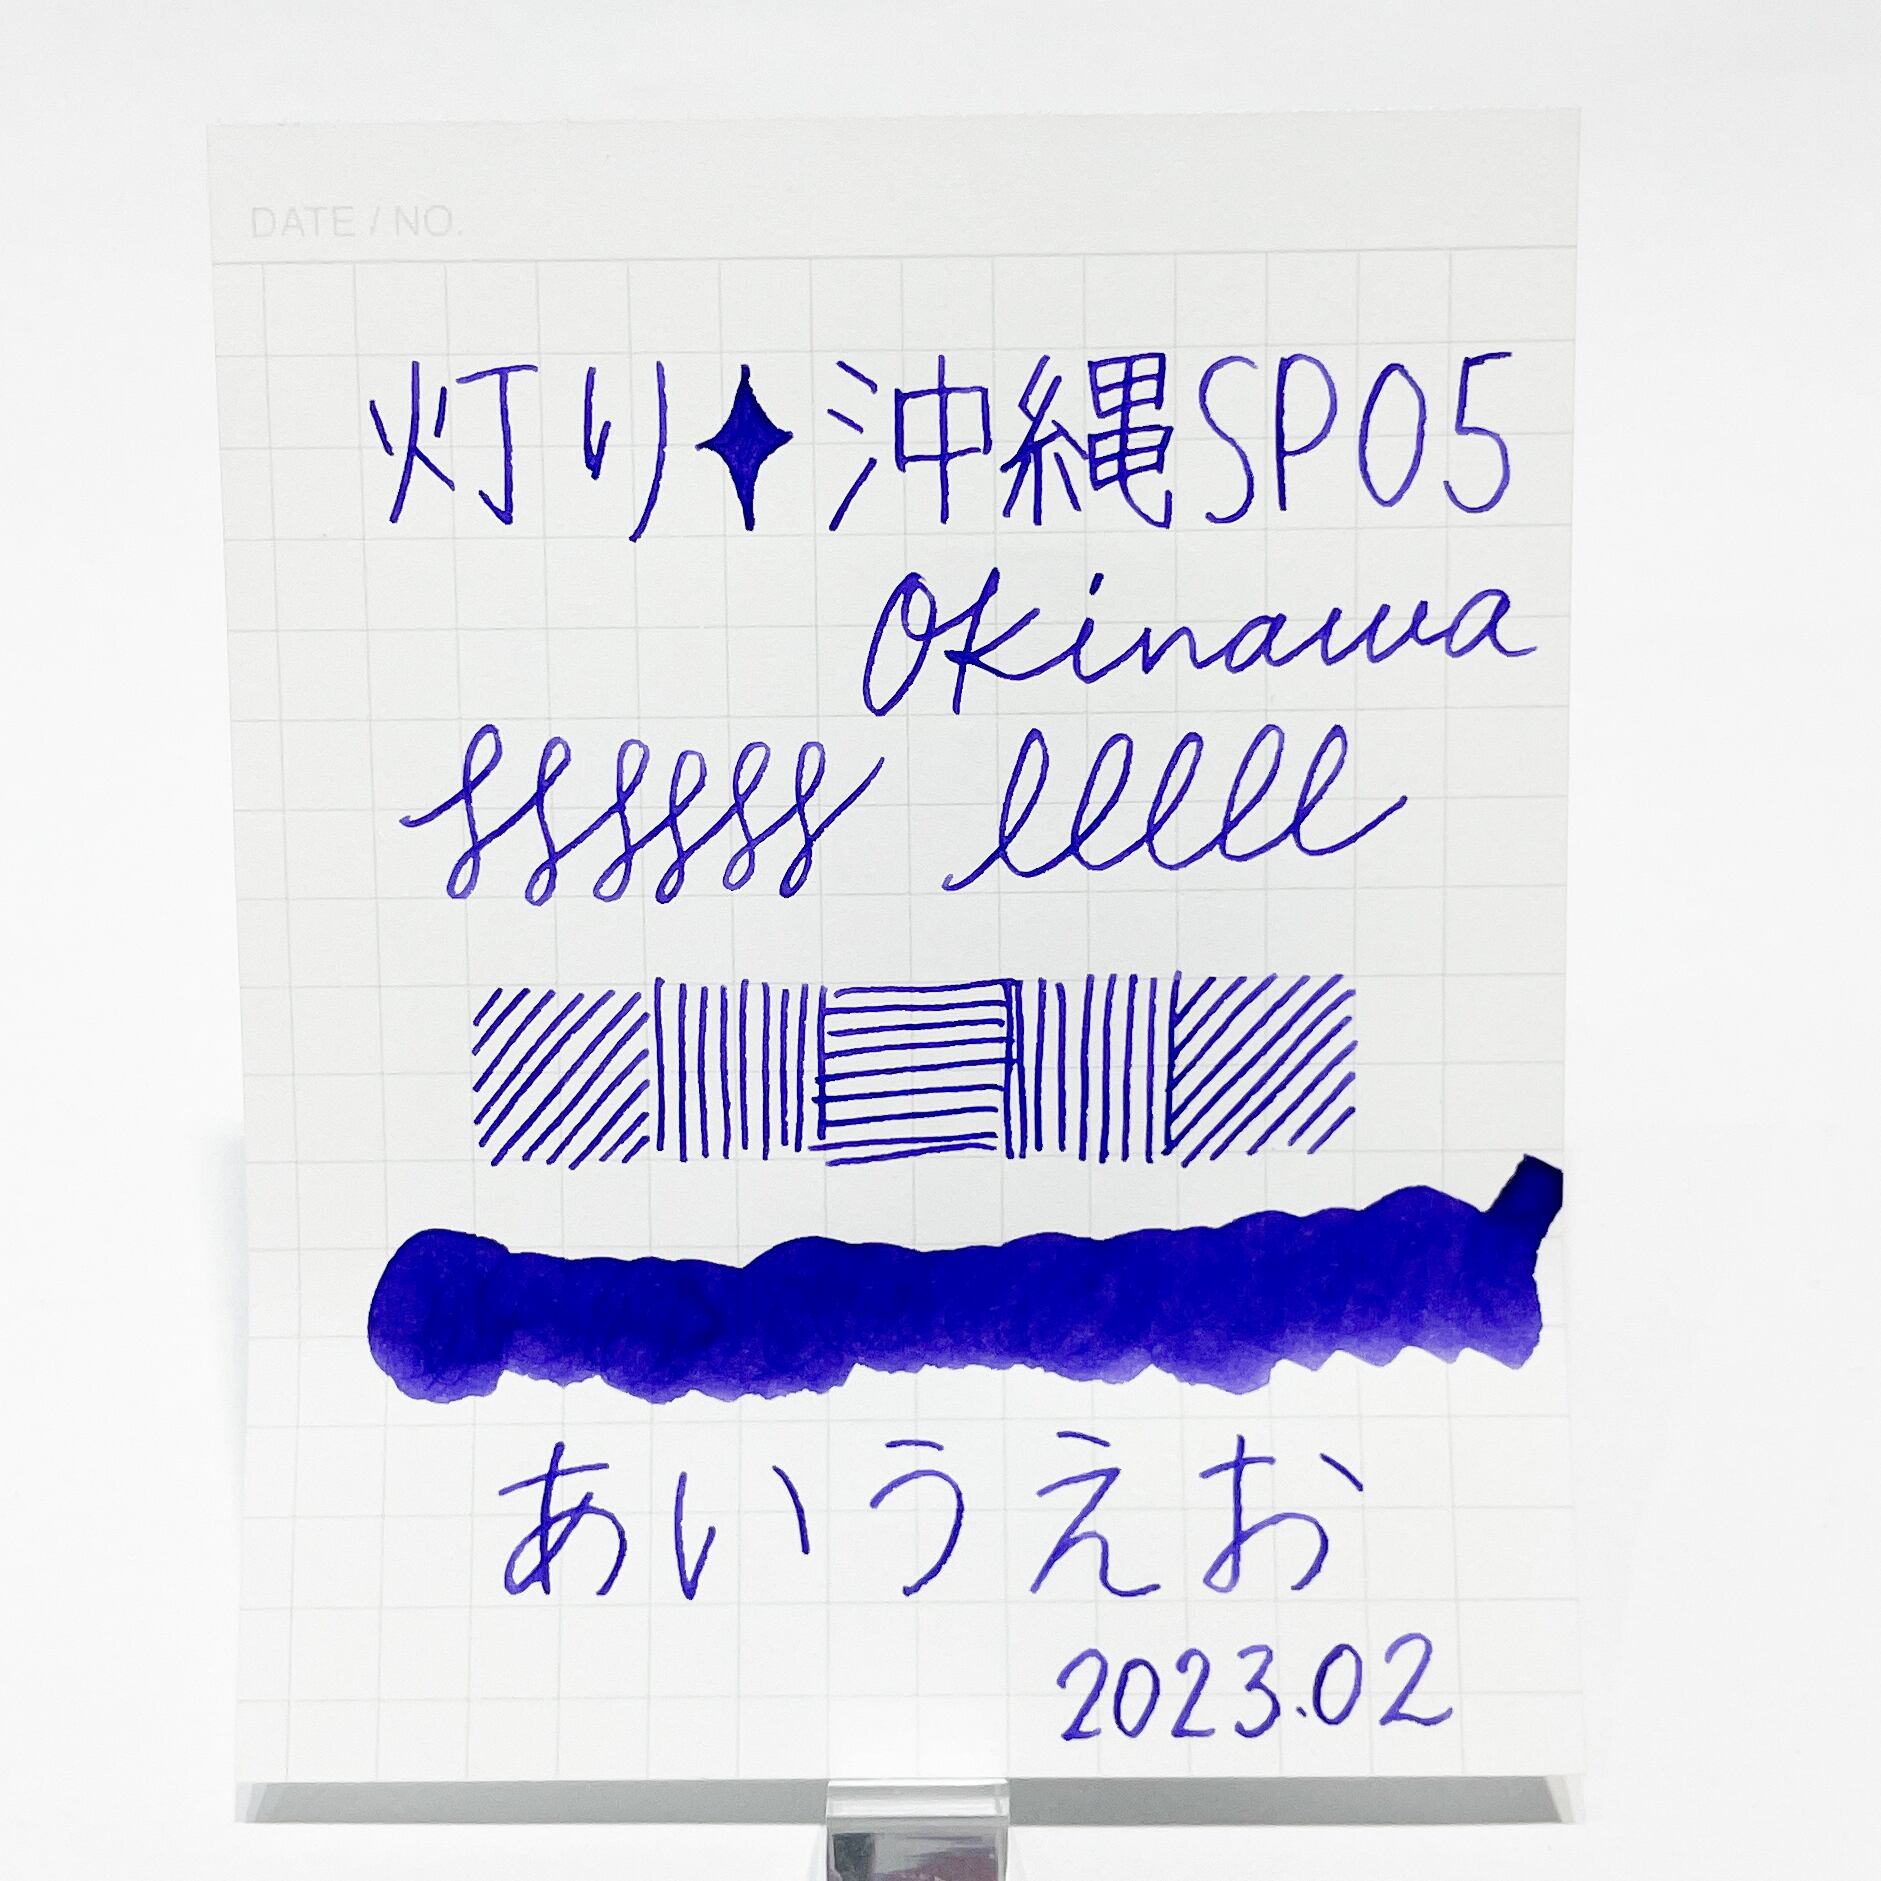 DATE / NO.
灯り✦沖縄SP05
Okinawa
ssssss lllll
あいうえお
2023.02